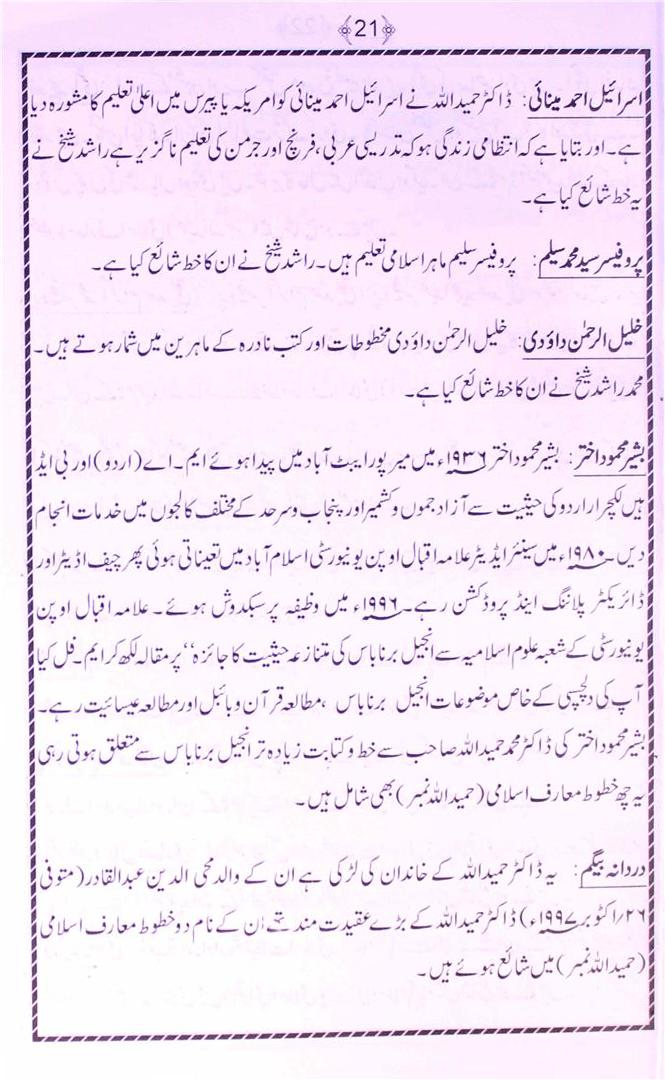 ﴿21﴾
اسرائیل احمد مینائی: ڈاکٹر حمیداللہ نے اسرائیل احمد مینائی کو امریکہ یا پیرس میں اعلیٰ تعلیم کا مشورہ دیا
ہے۔ اور بتایا ہے کہ انتظامی زندگی ہو کہ تدریسی عربی، فرنچ اور جرمن کی تعلیم ناگزیر ہے راشد شیخ نے
یہ خط شائع کیا ہے۔
پروفیسر سید محمد سلیم: پروفیسر سلیم ماہر اسلامی تعلیم ہیں۔ راشد شیخ نے ان کا خط شائع کیا ہے۔
خلیل الرحمٰن داؤدی: خلیل الرحمٰن داؤدی مخطوطات اور کتب نادرہ کے ماہرین میں شمار ہوتے ہیں۔
محمد راشد شیخ نے ان کا خط شائع کیا ہے۔
بشیر محمود اختر: بشیر محمود اختر ۱۹۳۶ء میں میر پور ایبٹ آباد میں پیدا ہوئے ایم۔ اے (اردو) اور بی ایڈ
ہیں لکچرار اردو کی حیثیت سے آزاد جموں و کشمیر اور پنجاب و سرحد کے مختلف کالجوں میں خدمات انجام
دیں ۱۹۸۰ء میں سینئر ایڈیٹر علامہ اقبال اوپن یونیورسٹی اسلام آباد میں تعیناتی ہوئی پھر چیف اڈیٹر اور
ڈائریکٹر پلاننگ اینڈ پروڈکشن رہے۔ ۱۹۹۶ء میں وظیفہ پر سبکدوش ہوئے۔ علامہ اقبال اوپن
یونیورسٹی کے شعبہ علوم اسلامیہ سے انجیل برناباس کی متنازعہ حیثیت کا جائزہ‘‘ پر مقالہ لکھ کر ایم۔ فل کیا
آپ کی دلچسپی کے خاص موضوعات انجیل برناباس، مطالعہ قرآن و بائبل اور مطالعہ عیسائیت رہے۔
بشیر محمود اختر کی ڈاکٹر محمد حمیداللہ صاحب سے خط و کتابت زیادہ تر انجیل برناباس سے متعلق ہوتی رہی
یہ چھ خطوط معارف اسلامی (حمیداللہ نمبر) بھی شامل ہیں۔
دردانہ بیگم: یہ ڈاکٹر حمیداللہ کے خاندان کی لڑکی ہے ان کے والد محی الدین عبدالقادر (متوفی
۲۶؍اکٹوبر ۱۹۹۷ء) ڈاکٹر حمیداللہ کے بڑے عقیدت مند تھے ان کے نام دو خطوط معارف اسلامی
(حمیداللہ نمبر) میں شائع ہوئے ہیں۔